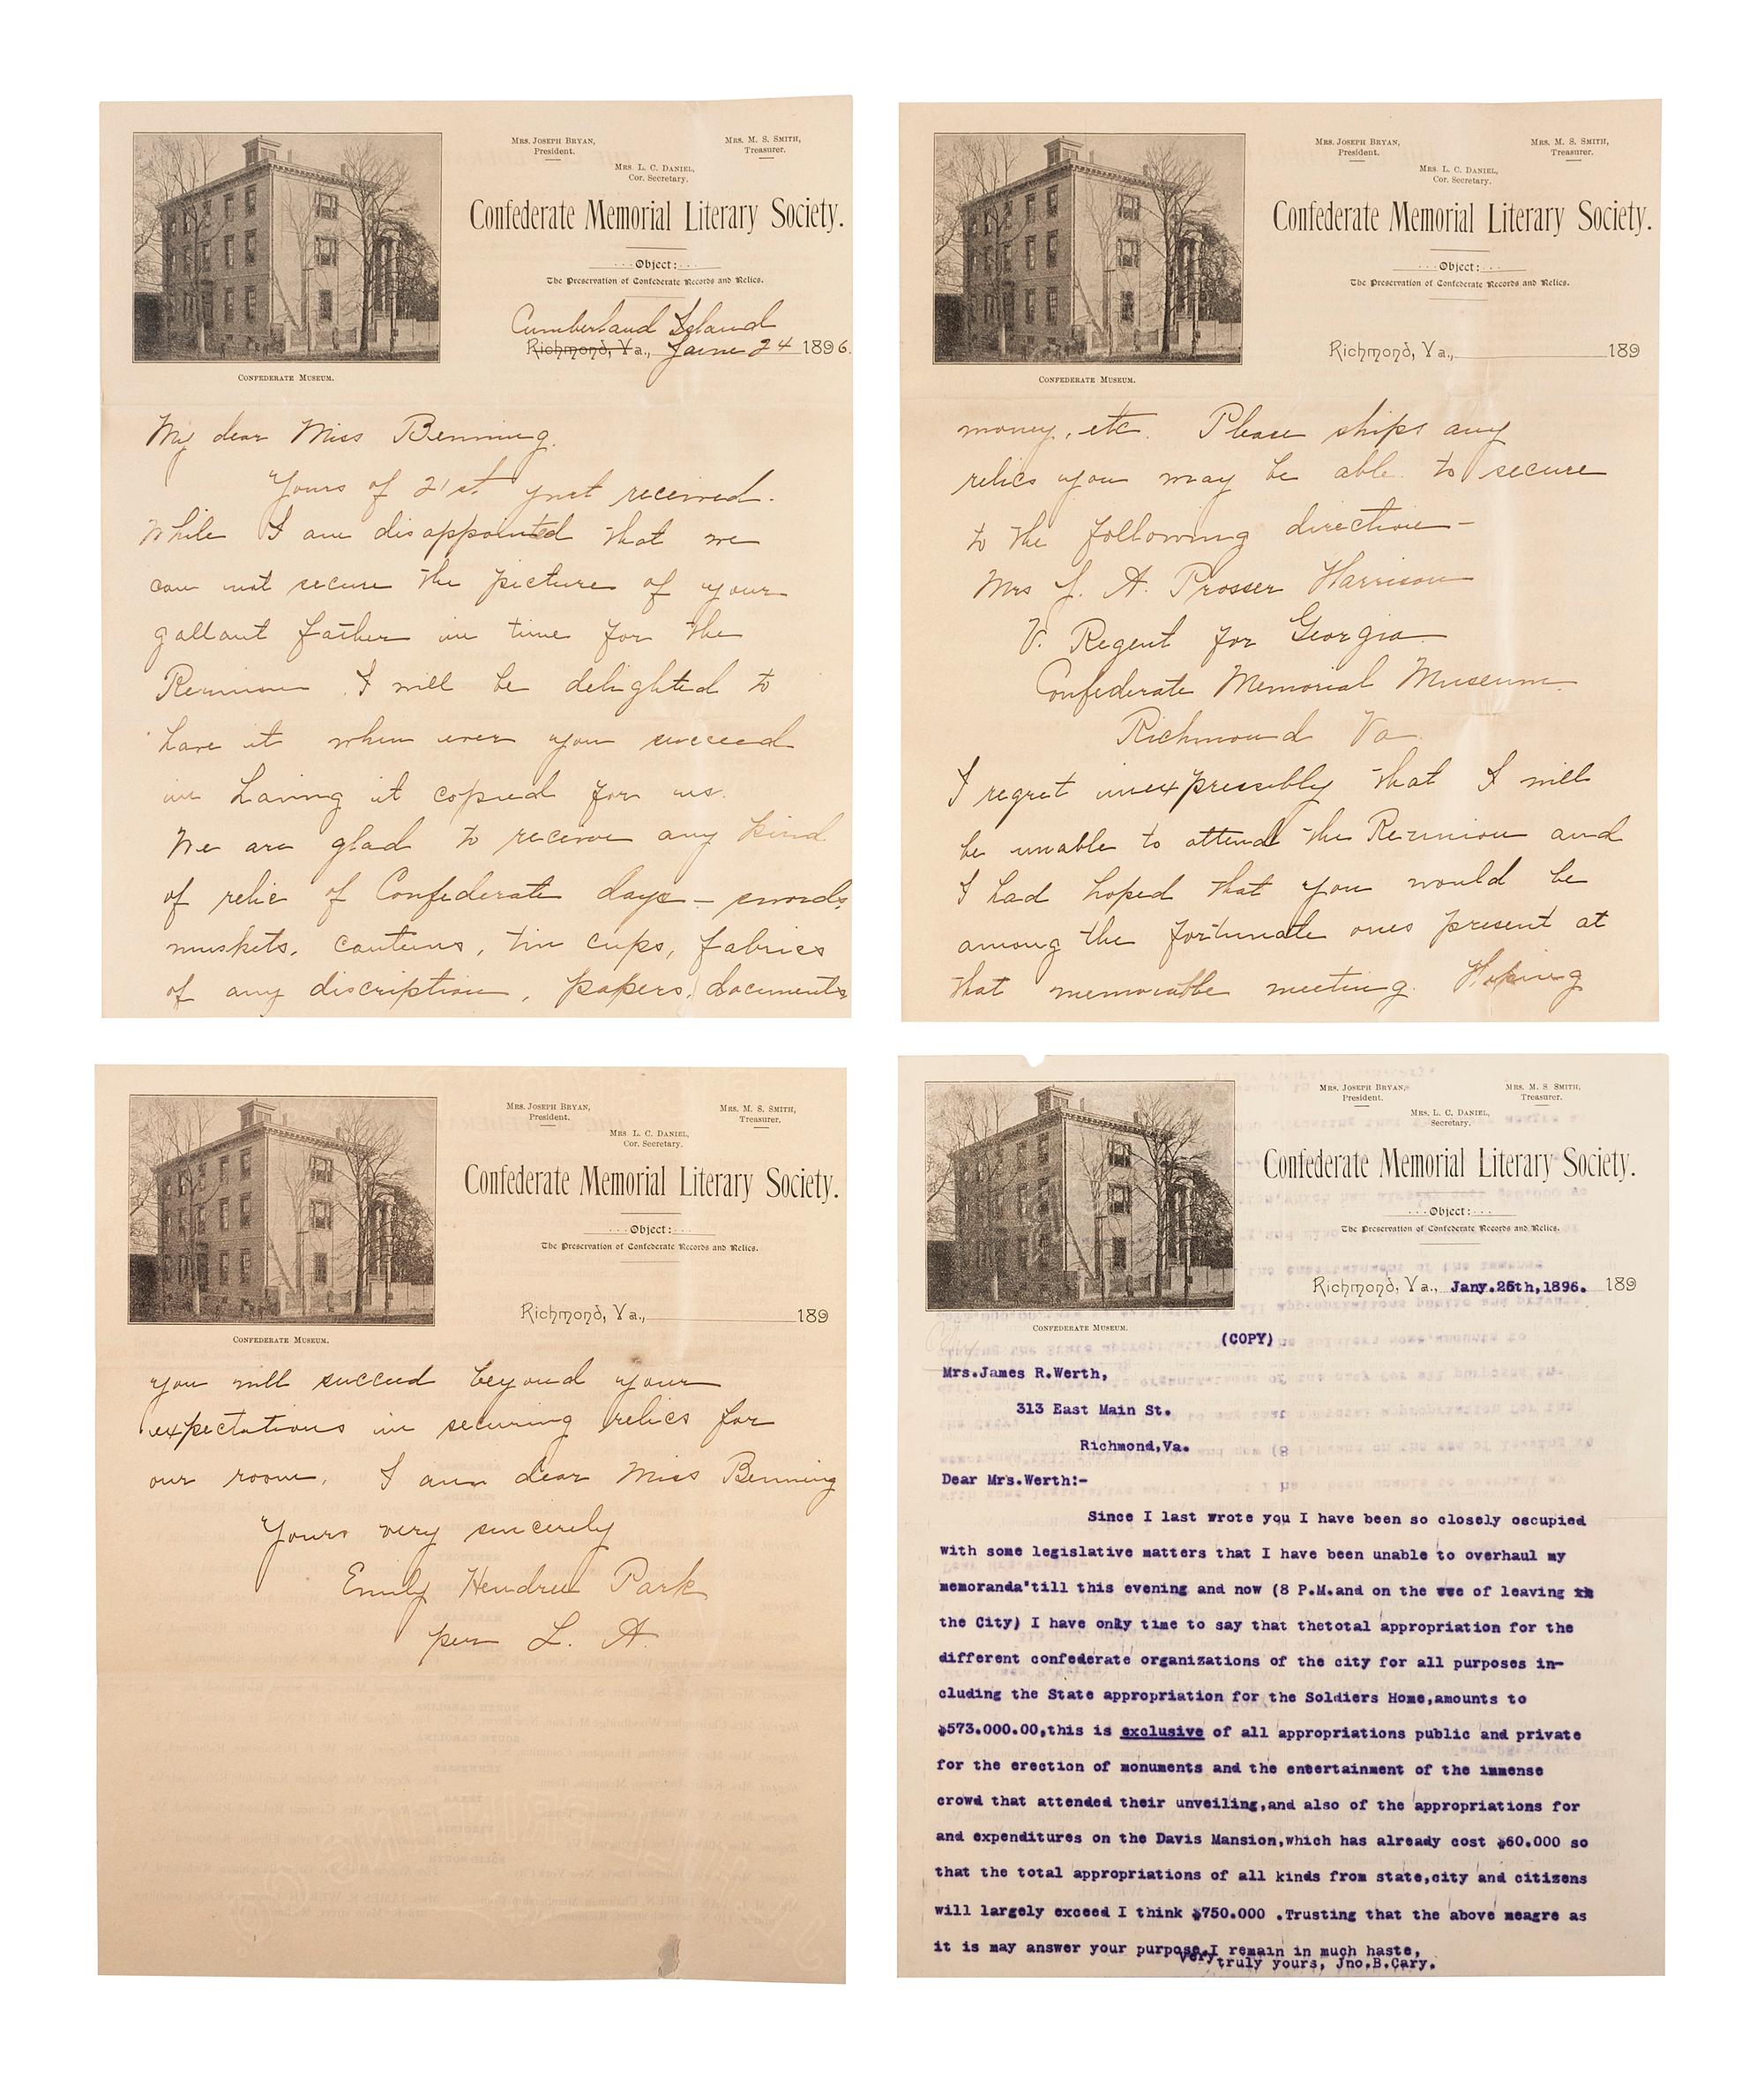 Mrs. Joseph Bryan,
President.
Mrs. M. S. Smith,
Treasurer.
Mrs. L. C. Daniel,
Cor. Secretary.
Confederate Memorial Literary Society.
Object:
The Preservation of Confederate Records and Relics.
Cumberland Island
Richmond, Va., June 24 1896.
Confederate Museum.
My dear Miss Benning.
Yours of 21st just received.
While I am disappointed that we
can not secure the picture of your
gallant father in time for the
Reunion I will be delighted to
have it when ever you succeed
in having it copied for us.
We are glad to receive any kind
of relic of Confederate days - swords,
muskets, canteens, tin cups, fabrics
of any discription, papers, documents
Mrs. Joseph Bryan,
President.
Mrs. M. S. Smith,
Treasurer.
Mrs. L. C. Daniel,
Cor. Secretary.
Confederate Memorial Literary Society.
Object:
The Preservation of Confederate Records and Relics.
Richmond, Va., 189
Confederate Museum.
money, etc. Please ship any
relics you may be able to secure
to the following direction -
Mrs J. A. Prosser Harrison
V. Regent for Georgia
Confederate Memorial Museum
Richmond Va.
I regret inexpressibly that I will
be unable to attend the Reunion and
I had hoped that you would be
among the fortunate ones present at
that memorable meeting. Hoping
Mrs. Joseph Bryan,
President.
Mrs. M. S. Smith,
Treasurer.
Mrs L. C. Daniel,
Cor. Secretary.
Confederate Memorial Literary Society.
Object:
The Preservation of Confederate Records and Relics.
Richmond, Va., 189
Confederate Museum.
you will succeed beyond your
expectations in securing relics for
our room. I am dear Miss Benning
Yours very sincerely
Emily Hendree Park
per L. A.
Mrs. Joseph Bryan,
President.
Mrs. M. S. Smith,
Treasurer.
Mrs. L. C. Daniel,
Secretary.
Confederate Memorial Literary Society.
Object:
The Preservation of Confederate Records and Relics.
Richmond, Va., Jany.25th,1896. 189
Confederate Museum.
(COPY)
Mrs.James R.Werth,
313 East Main St.
Richmond,Va.
Dear Mrs.Werth:-
Since I last wrote you I have been so closely occupied
with some legislative matters that I have been unable to overhaul my
memoranda'till this evening and now (8 P.M.and on the eve of leaving
the City) I have only time to say that thetotal appropriation for the
different confederate organizations of the city for all purposes in-
cluding the State appropriation for the Soldiers Home,amounts to
$573.000.00,this is exclusive of all appropriations public and private
for the erection of monuments and the entertainment of the immense
crowd that attended their unveiling,and also of the appropriations for
and expenditures on the Davis Mansion,which has already cost $60.000 so
that the total appropriations of all kinds from state,city and citizens
will largely exceed I think $750.000 .Trusting that the above meagre as
it is may answer your purpose,I remain in much haste,
Very truly yours, Jno.B.Cary.